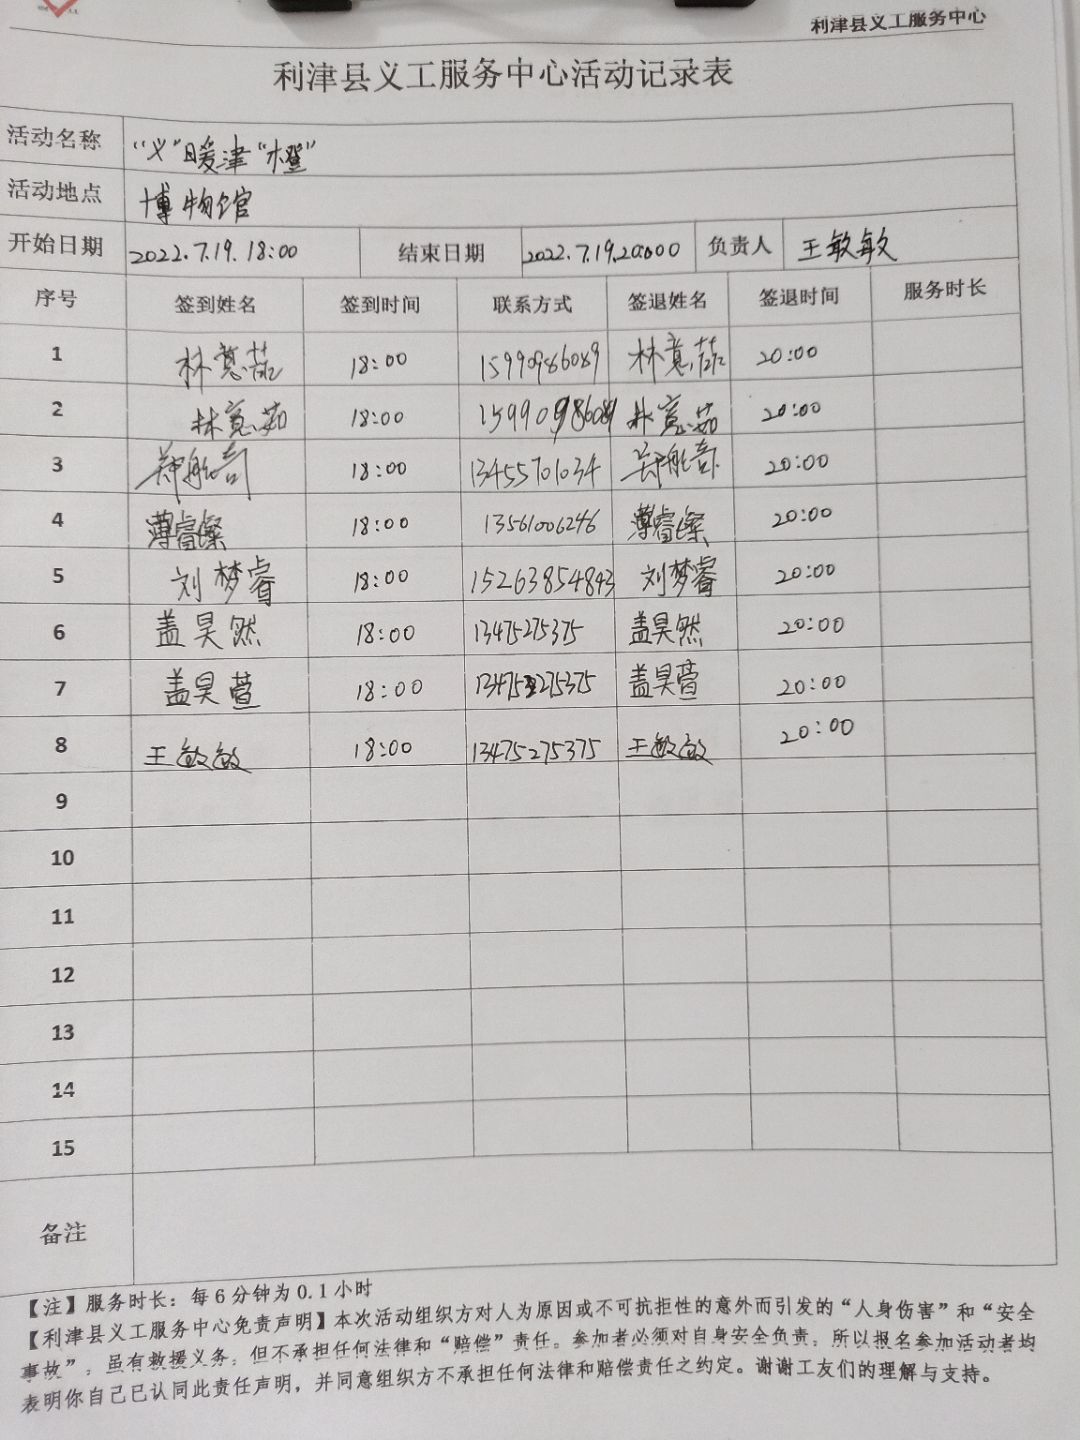 利津县义工服务中心
利津县义工服务中心活动记录表
活动名称 “义”暖津“橙”
活动地点 博物馆
开始日期 2022.7.19.18:00 结束日期 2022.7.19.20:00 负责人 王敏敏
序号 签到姓名 签到时间 联系方式 签退姓名 签退时间 服务时长
1 林意茹 18:00 15990986089 林意茹 20:00
2 林意茹 18:00 1599098608 林意茹 20:00
3 郑航 18:00 13455701034 郑航 20:00
4 薄睿璨 18:00 13561006246 薄睿璨 20:00
5 刘梦睿 18:00 15263854843 刘梦睿 20:00
6 盖昊然 18:00 13475275375 盖昊然 20:00
7 盖昊萱 18:00 13475275375 盖昊萱 20:00
8 王敏敏 18:00 13475275375 王敏敏 20:00
9
10
11
12
13
14
15
备注
【注】服务时长：每6分钟为0.1小时
【利津县义工服务中心免责声明】本次活动组织方对人为原因或不可抗拒性的意外而引发的“人身伤害”和“安全
事故”，虽有救援义务，但不承担任何法律和“赔偿”责任。参加者必须对自身安全负责，所以报名参加活动者均
表明你自己已认同此责任声明，并同意组织方不承担任何法律和赔偿责任之约定。谢谢工友们的理解与支持。